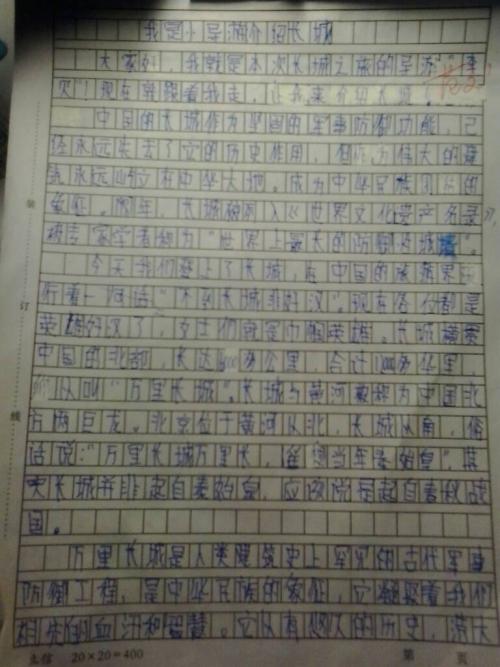 我是小导游介绍长城
大家好，我就是本次长城之旅的导游
！现在就跟着我走，让我来介绍长城
中国的长城作为坚固的军事防御功能，已
经永远失去了它的历史作用，但作为伟大的建
筑永远屹立在中华大地。成为中华民族的
象征。长城被列入《世界文化遗产名录》，
被专家学者称为“世界上最长的防御城墙”。
今天我们登上了长城，在中国的旅游界
行着一句话：“不到长城非好汉”。现在各位都是
英雄好汉了，女士们就是巾帼英雄。长城横贯
中国的北部，长达多公里，合计多华里，
所以叫“万里长城”。长城与黄河被称为中国北
方两巨龙。北京位于黄河以北，长城以南，俗
话说：“万里长城万里长，当年秦始皇”，其
实长城并非起自秦始皇，应该说是起自春秋战
国。
万里长城是人类建筑史上罕见的古代军事
防御工程，是中华民族的象征，它凝聚着我们
祖先的血汗和智慧。它以有悠久的历史，浩大
立信 20×20=400 第 页
装
订
线